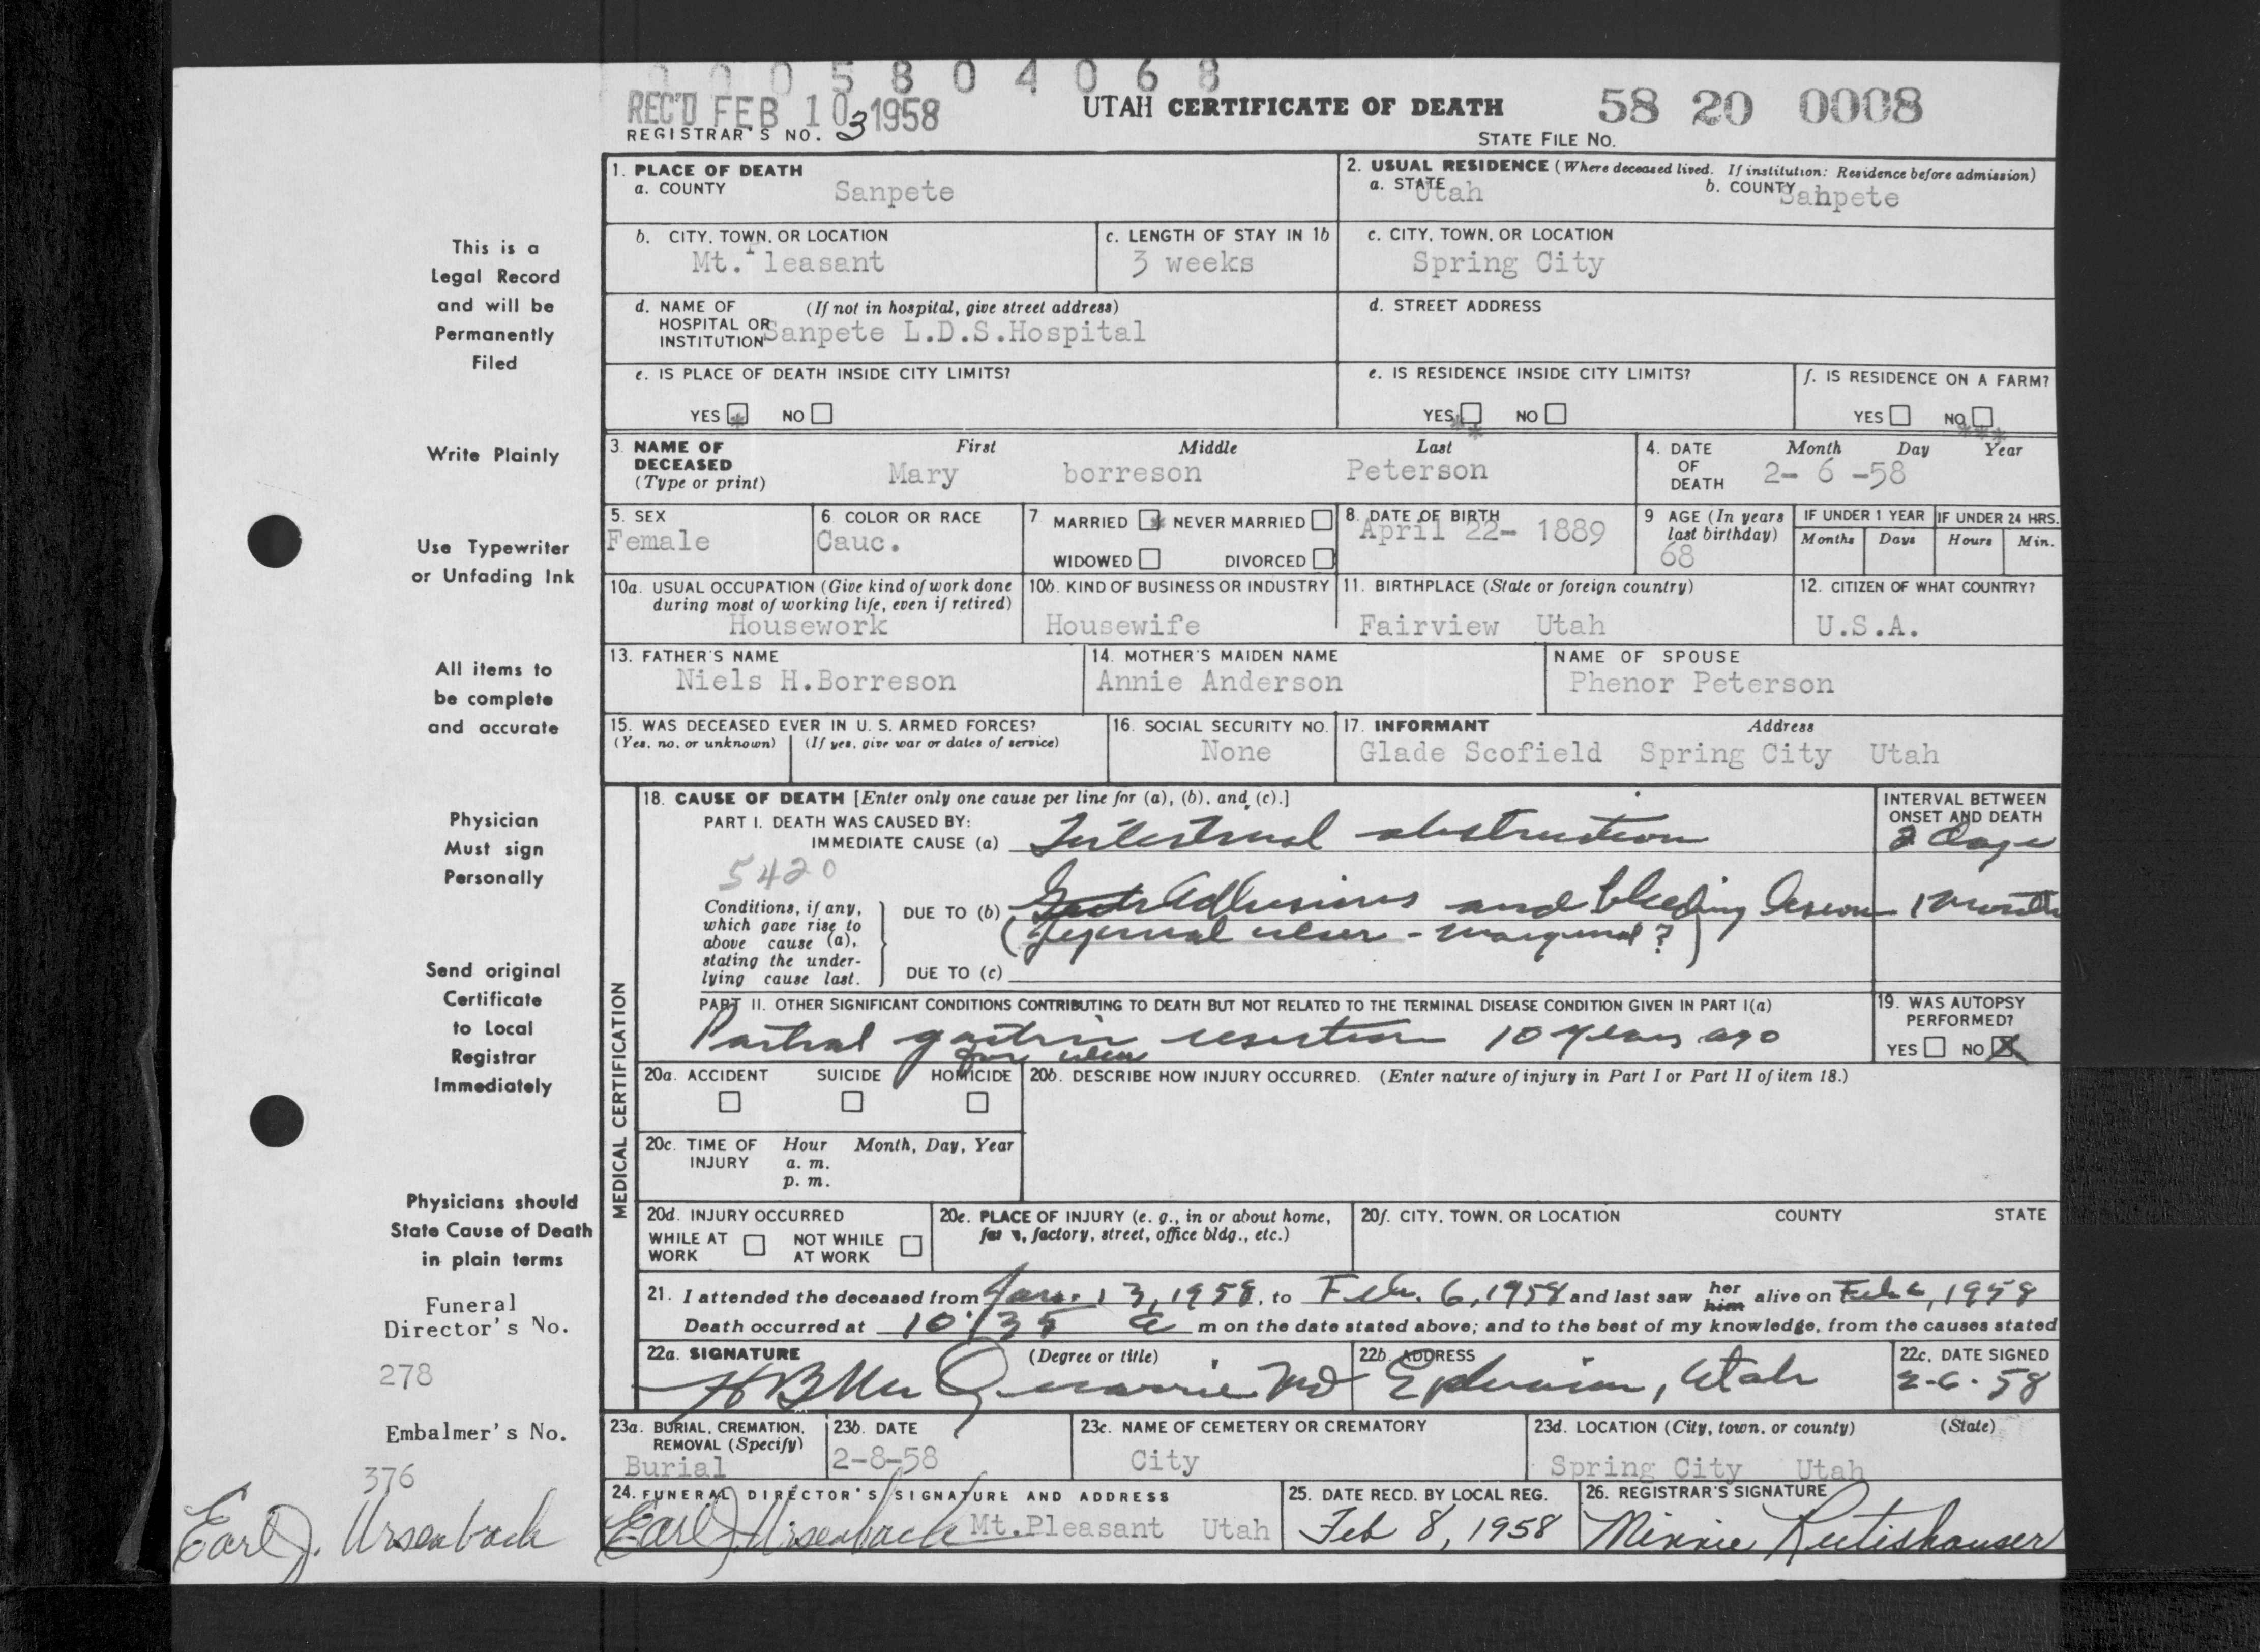 0 0 0 5 8 0 4 0 6 8
REC'D FEB 10 1958
UTAH CERTIFICATE OF DEATH
58 20 0008
REGISTRAR'S NO. 3
STATE FILE NO.
1. PLACE OF DEATH
a. COUNTY Sanpete
2. USUAL RESIDENCE (Where deceased lived. If institution: Residence before admission)
a. STATE Utah b. COUNTY Sanpete
b. CITY, TOWN, OR LOCATION
Mt. Pleasant
c. LENGTH OF STAY IN 1b
3 weeks
c. CITY, TOWN, OR LOCATION
Spring City
d. NAME OF (If not in hospital, give street address)
HOSPITAL OR
INSTITUTION Sanpete L.D.S.Hospital
d. STREET ADDRESS
e. IS PLACE OF DEATH INSIDE CITY LIMITS?
YES * NO
e. IS RESIDENCE INSIDE CITY LIMITS?
YES ** NO
f. IS RESIDENCE ON A FARM?
YES NO ***
3. NAME OF DECEASED (Type or print)
First Middle Last
Mary borreson Peterson
4. DATE OF DEATH
Month Day Year
2- 6 -58
5. SEX
Female
6. COLOR OR RACE
Cauc.
7. MARRIED * NEVER MARRIED
WIDOWED DIVORCED
8. DATE OF BIRTH
April 22- 1889
9 AGE (In years last birthday)
68
IF UNDER 1 YEAR
Months Days
IF UNDER 24 HRS.
Hours Min.
10a. USUAL OCCUPATION (Give kind of work done
during most of working life, even if retired)
Housework
10b. KIND OF BUSINESS OR INDUSTRY
Housewife
11. BIRTHPLACE (State or foreign country)
Fairview Utah
12. CITIZEN OF WHAT COUNTRY?
U.S.A.
13. FATHER'S NAME
Niels H.Borreson
14. MOTHER'S MAIDEN NAME
Annie Anderson
NAME OF SPOUSE
Phenor Peterson
15. WAS DECEASED EVER IN U. S. ARMED FORCES?
(Yes, no, or unknown) (If yes, give war or dates of service)
16. SOCIAL SECURITY NO.
None
17. INFORMANT Address
Glade Scofield Spring City Utah
MEDICAL CERTIFICATION
18. CAUSE OF DEATH [Enter only one cause per line for (a), (b), and (c).]
PART I. DEATH WAS CAUSED BY:
IMMEDIATE CAUSE (a) Intestinal obstruction
INTERVAL BETWEEN
ONSET AND DEATH
2 days
5420
Conditions, if any,
which gave rise to
above cause (a),
stating the under-
lying cause last.
DUE TO (b) Adhesions and bleeding lesion 1 month
(Jejunal ulcer - marginal?)
DUE TO (c)
PART II. OTHER SIGNIFICANT CONDITIONS CONTRIBUTING TO DEATH BUT NOT RELATED TO THE TERMINAL DISEASE CONDITION GIVEN IN PART I(a)
Partial gastric resection 10 years ago
for ulcer
19. WAS AUTOPSY
PERFORMED?
YES NO X
20a. ACCIDENT SUICIDE HOMICIDE
20b. DESCRIBE HOW INJURY OCCURRED. (Enter nature of injury in Part I or Part II of item 18.)
20c. TIME OF INJURY
Hour Month, Day, Year
a. m.
p. m.
20d. INJURY OCCURRED
WHILE AT WORK NOT WHILE AT WORK
20e. PLACE OF INJURY (e. g., in or about home,
farm, factory, street, office bldg., etc.)
20f. CITY, TOWN, OR LOCATION COUNTY STATE
21. I attended the deceased from Jan. 13, 1958, to Feb. 6, 1958 and last saw her him alive on Feb 6, 1958
Death occurred at 10:35 a m on the date stated above; and to the best of my knowledge, from the causes stated
22a. SIGNATURE (Degree or title)
H B McQuarrie MD
22b. ADDRESS
Ephraim, Utah
22c. DATE SIGNED
2-6-58
23a. BURIAL, CREMATION,
REMOVAL (Specify)
Burial
23b. DATE
2-8-58
23c. NAME OF CEMETERY OR CREMATORY
City
23d. LOCATION (City, town, or county) (State)
Spring City Utah
24. FUNERAL DIRECTOR'S SIGNATURE AND ADDRESS
Earl J. Ursenbach Mt.Pleasant Utah
25. DATE RECD. BY LOCAL REG.
Feb 8, 1958
26. REGISTRAR'S SIGNATURE
Minnie Rutishauser
This is a
Legal Record
and will be
Permanently
Filed
Write Plainly
Use Typewriter
or Unfading Ink
All items to
be complete
and accurate
Physician
Must sign
Personally
Send original
Certificate
to Local
Registrar
Immediately
Physicians should
State Cause of Death
in plain terms
Funeral
Director's No.
278
Embalmer's No.
376
Earl J. Ursenbach